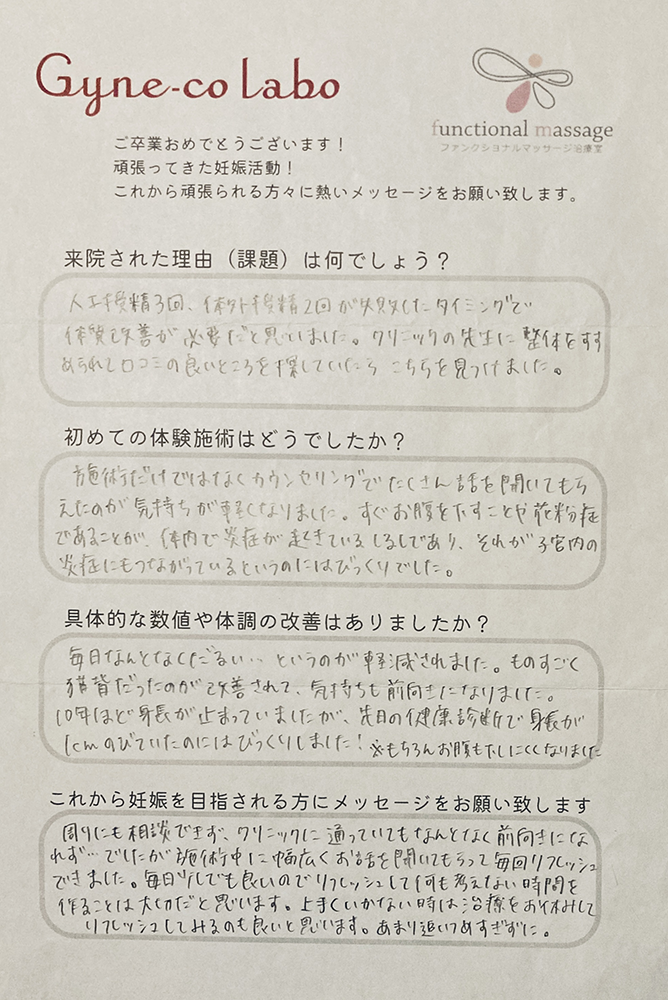 Gyne-co labo
functional massage
ファンクショナルマッサージ治療室
ご卒業おめでとうございます！
頑張ってきた妊娠活動！
これから頑張られる方々に熱いメッセージをお願い致します。
来院された理由（課題）は何でしょう？
人工授精3回、体外授精2回が失敗したタイミングで
体質改善が必要だと思いました。クリニックの先生に整体をすす
められて口コミの良いところを探していたら こちらを見つけました。
初めての体験施術はどうでしたか？
施術だけではなくカウンセリングでたくさん話を聞いてもら
えたのが気持ちが軽くなりました。すぐお腹をだすことや花粉症
であることが、体内で炎症が起きているしるしであり、それが子宮内の
炎症にもつながっているというのにはびっくりでした。
具体的な数値や体調の改善はありましたか？
毎日なんとなくだるい…というのが軽減されました。ものすごく
猫背だったのが改善されて、気持ちも前向きになりました。
10年ほど身長が止まっていましたが、先日の健康診断で身長が
1cmのびていたのにはびっくりしました！ ※もちろんお腹もだしにくくなりました
これから妊娠を目指される方にメッセージをお願い致します
周りにも相談できず、クリニックに通っていてもなんとなく前向きにな
れず…でしたが施術中に幅広くお話を聞いてもらって毎回リフレッシュ
できました。毎日少しでも良いのでリフレッシュして何も考えない時間を
作ることは大切だと思います。上手くいかない時は治療をお休みして
リフレッシュしてみるのも良いと思います。あまり追いつめすぎずに。